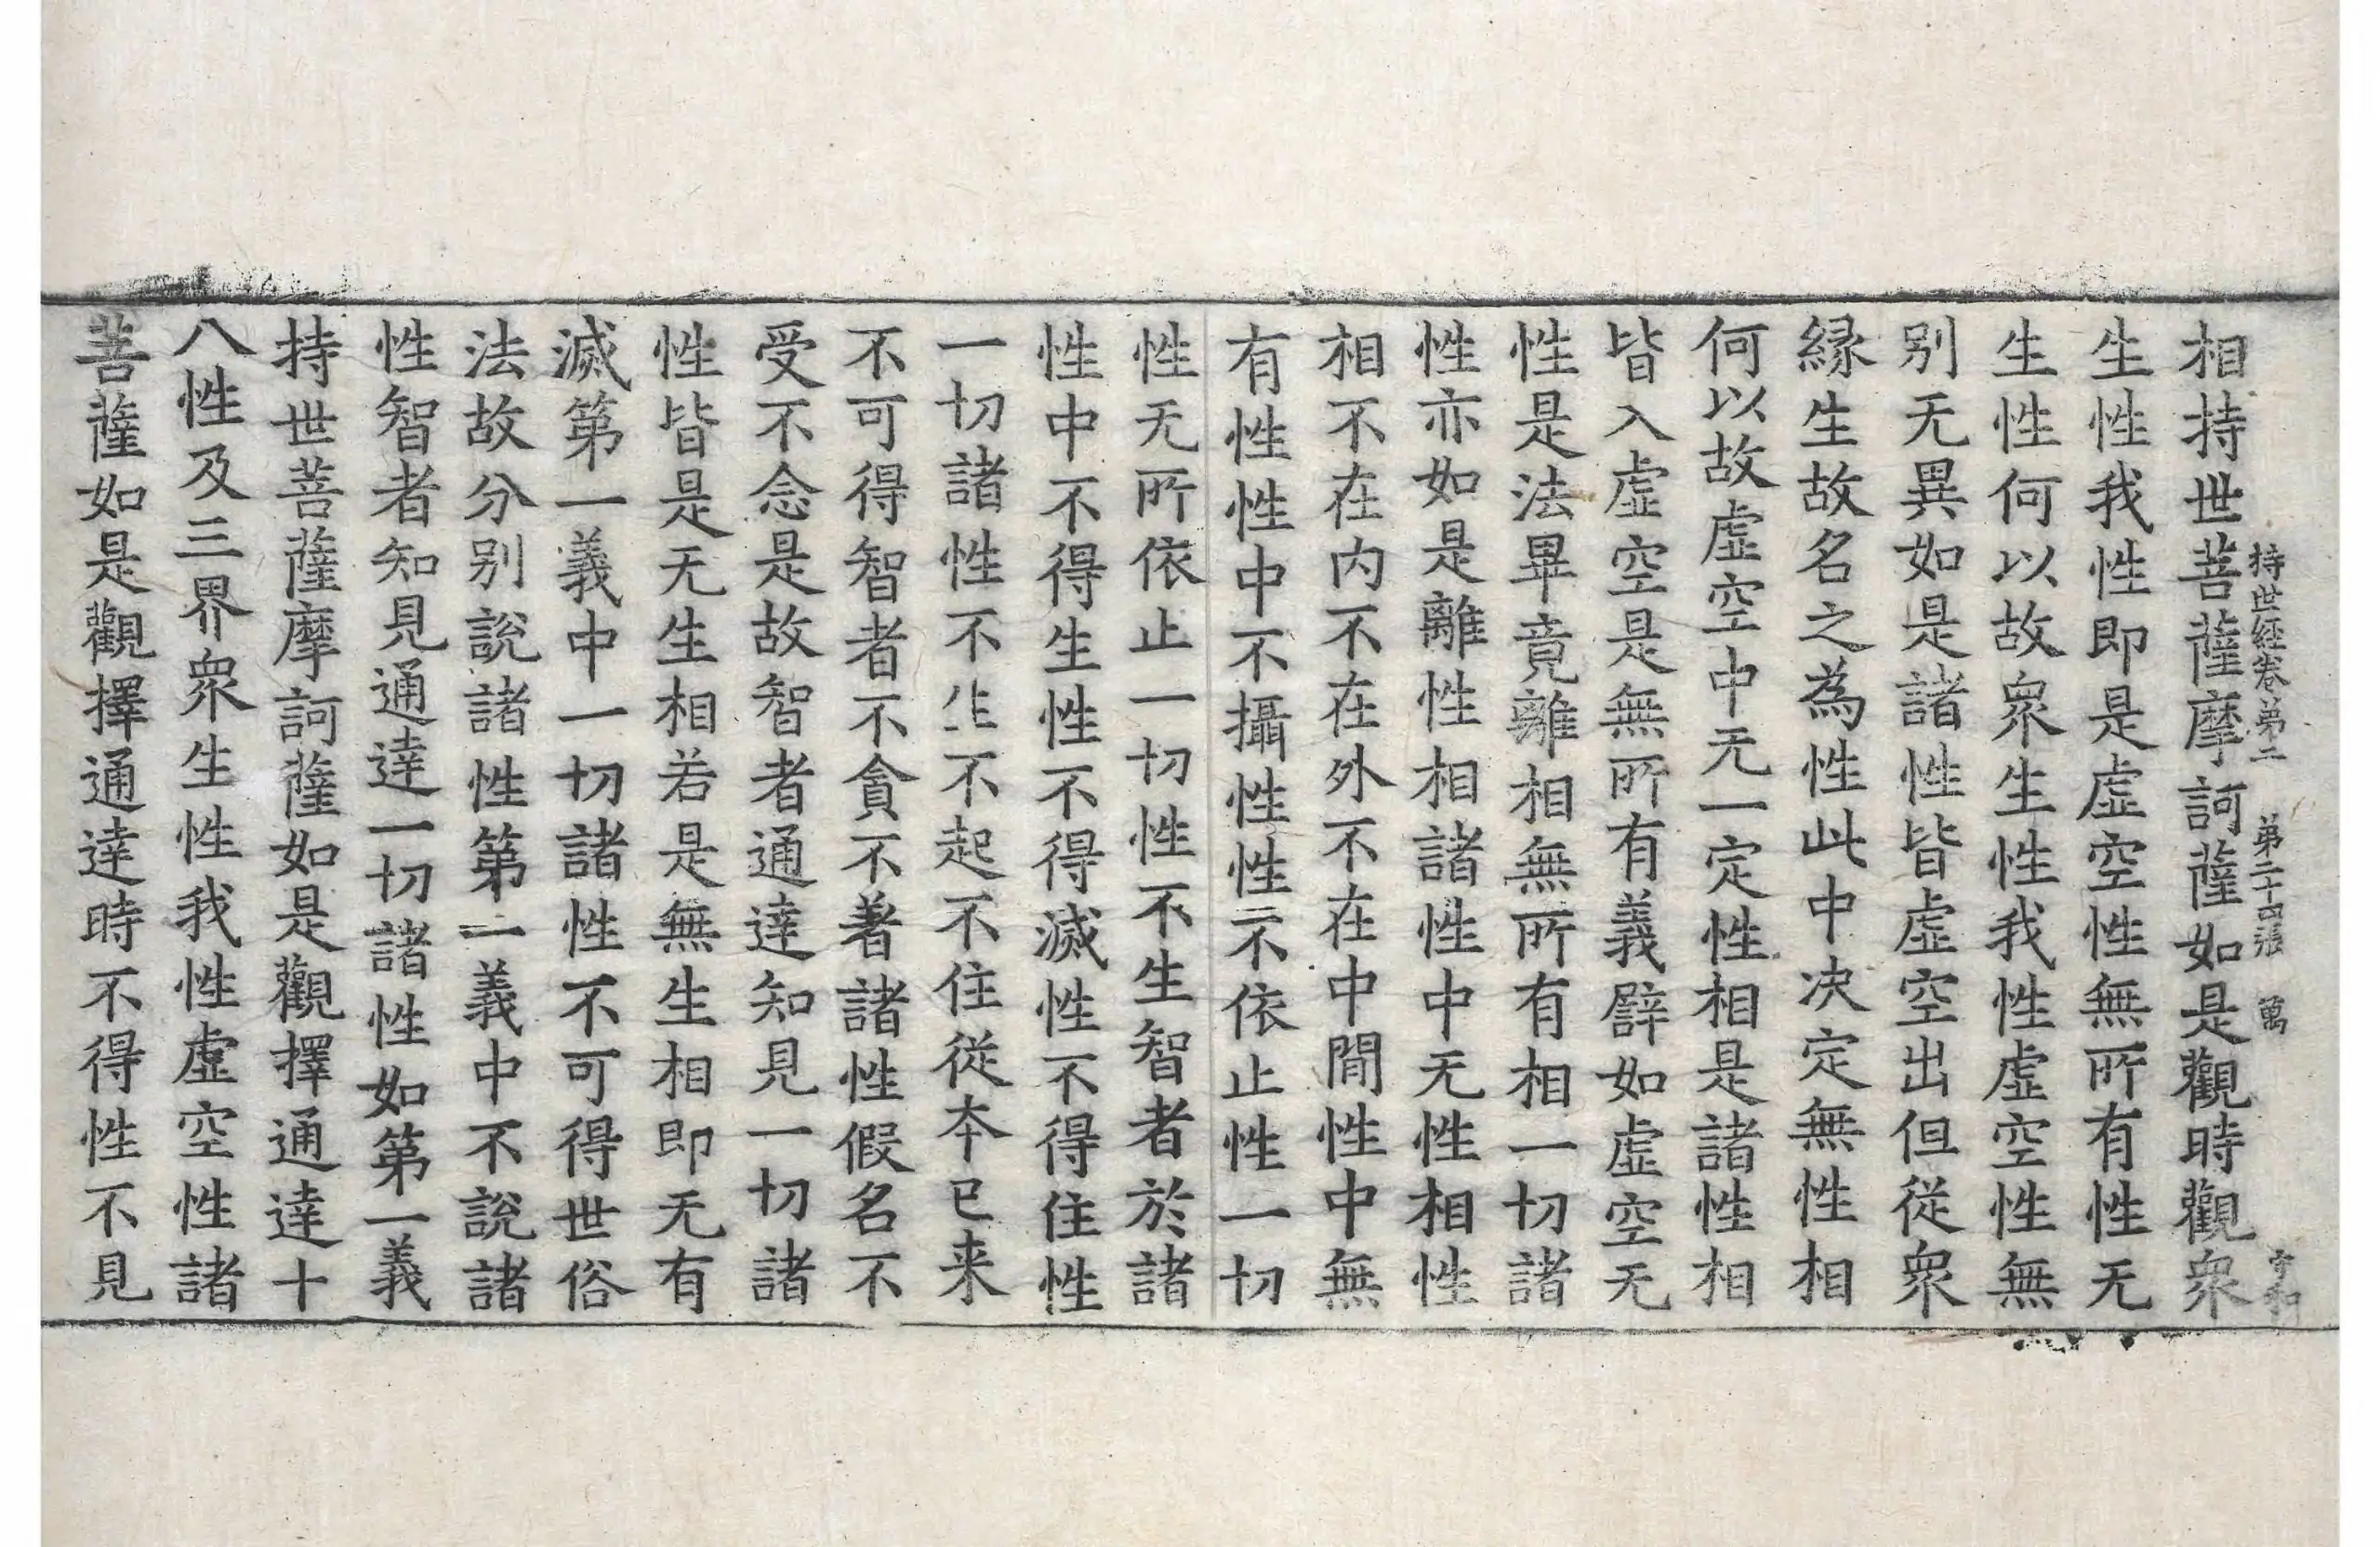 持世経卷第二 第二十四張 萬
相持世菩薩摩訶薩如是觀時觀衆
生性我性即是虛空性無所有性无
生性何以故衆生性我性虛空性無
别无異如是諸性皆虛空出但従衆
縁生故名之為性此中决定無性相
何以故虛空中无一定性相是諸性相
皆入虛空是無所有義譬如虛空无
性是法畢竟離相無所有相一切諸
性亦如是離性相諸性中无性相性
相不在内不在外不在中間性中無
有性性中不攝性性不依止性一切
性无所依止一切性不生智者於諸
性中不得生性不得滅性不得住性
一切諸性不生不起不住従本已来
不可得智者不貪不著諸性假名不
受不念是故智者通達知見一切諸
性皆是无生相若是無生相即无有
滅第一義中一切諸性不可得世俗
法故分别說諸性第一義中不說諸
性智者知見通達一切諸性如第一義
持世菩薩摩訶薩如是觀擇通達十
八性及三界衆生性我性虛空性諸
菩薩如是觀擇通達時不得性不見